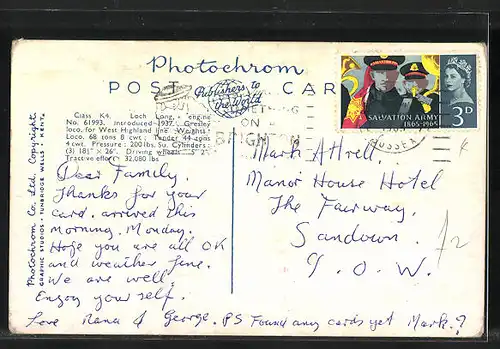 Photochrom
POST CARD
Publishers to
the World
Class K4. Loch Long, engine
No. 61993. Introduced 1937. Gresley
loco. for West Highland line. Weights:
Loco. 68 tons 8 cwt; Tender 44 tons
4 cwt. Pressure: 200 lbs. Su. Cylinders:
(3) 18½" × 26". Driving wheels: 5' 2".
Tractive effort: 32,080 lbs.
Photochrom Co. Ltd. Copyright.
GRAPHIC STUDIOS, TUNBRIDGE WELLS, KENT.
ON
BRIGHTON
SUSSEX
SALVATION ARMY
1865-1965
3D
Dear Family,
Thanks for your
card, arrived this
morning, Monday.
Hope you are all OK
and weather fine.
We are well.
Enjoy your self.
Love Nana & George. PS Found any cards yet Mark?
Mark Attrell
Manor House Hotel
The Fairway,
Sandown.
I. O. W.